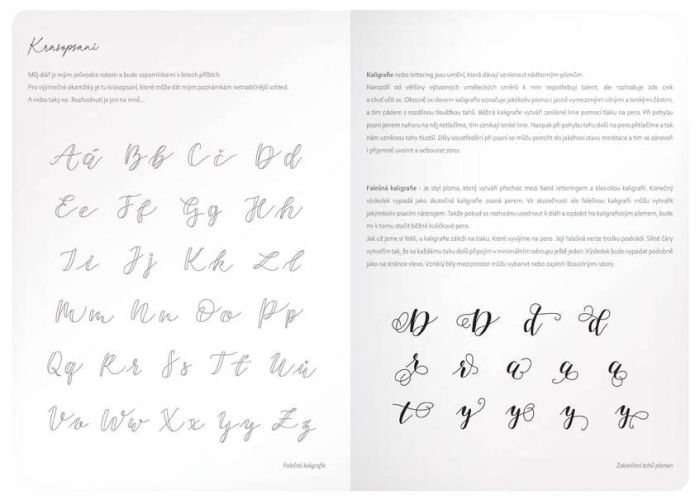 Krasopsaní
Můj diář je mým průvodce rokem a bude vzpomínkami v letech příštích.
Pro výjimečné okamžiky je tu krasopsaní, které může dát mým poznámkám netradičnější vzhled.
A nebo taky ne. Rozhodnutí je jen na mně...
Aá Bb Cč Dd
Ee Ff Gg Hh
Ii Jj Kk Ll
Mm Nn Oo Pp
Qq Rr Ss Tť Uů
Vv Ww Xx Yy Zz
Falešná kaligrafie
Kaligrafie nebo lettering jsou umění, která dávají vzniknout nádherným písmům.
Narozdíl od většiny výtvarných uměleckých směrů k nim nepotřebuji talent, ale rozhoduje zde cvik
a chuť učit se. Obecně se slovem kaligrafie označuje jakékoliv písmo s jasně vymezenými silnými a tenkými částmi,
a tím pádem s rozdílnou tloušťkou tahů. Běžná kaligrafie vytváří zesílené linie pomocí tlaku na pero. Při pohybu
psaní perem nahoru na něj netlačíme, tím vznikají tenké linie. Naopak při pohybu tahu dolů na pero přitlačíme a tak
nám vzniknou tahy tlustší. Díky soustředění při psaní se můžu ponořit do jakéhosi stavu meditace a tím se zároveň
i příjemně uvolnit a odbourat stres.
Falešná kaligrafie - Je styl písma, který vytváří přechod mezi hand letteringem a klasickou kaligrafií. Konečný
výsledek vypadá jako skutečná kaligrafie psaná perem. Ve skutečnosti ale falešnou kaligrafii můžu vytvořit
jakýmkoliv psacím nástrojem. Takže pokud se rozhodnu usednout k diáři a ozdobit ho kaligrafickým písmem, bude
mi k tomu stačit běžné kuličkové pero.
Jak už jsme si řekli, u kaligrafie záleží na tlaku, které vyvíjíme na pero. Její falešná verze trošku podvádí. Silné čáry
vytvořím tak, že se každému tahu dolů připojím v minimálním odstupu ještě jeden. Výsledek bude vypadat podobně
jako na stránce vlevo. Vzniklý bílý meziprostor můžu vybarvit nebo zaplnit libovolnými vzory.
D D d d
r r a a a
t y y y y
Zakončení tahů písmen